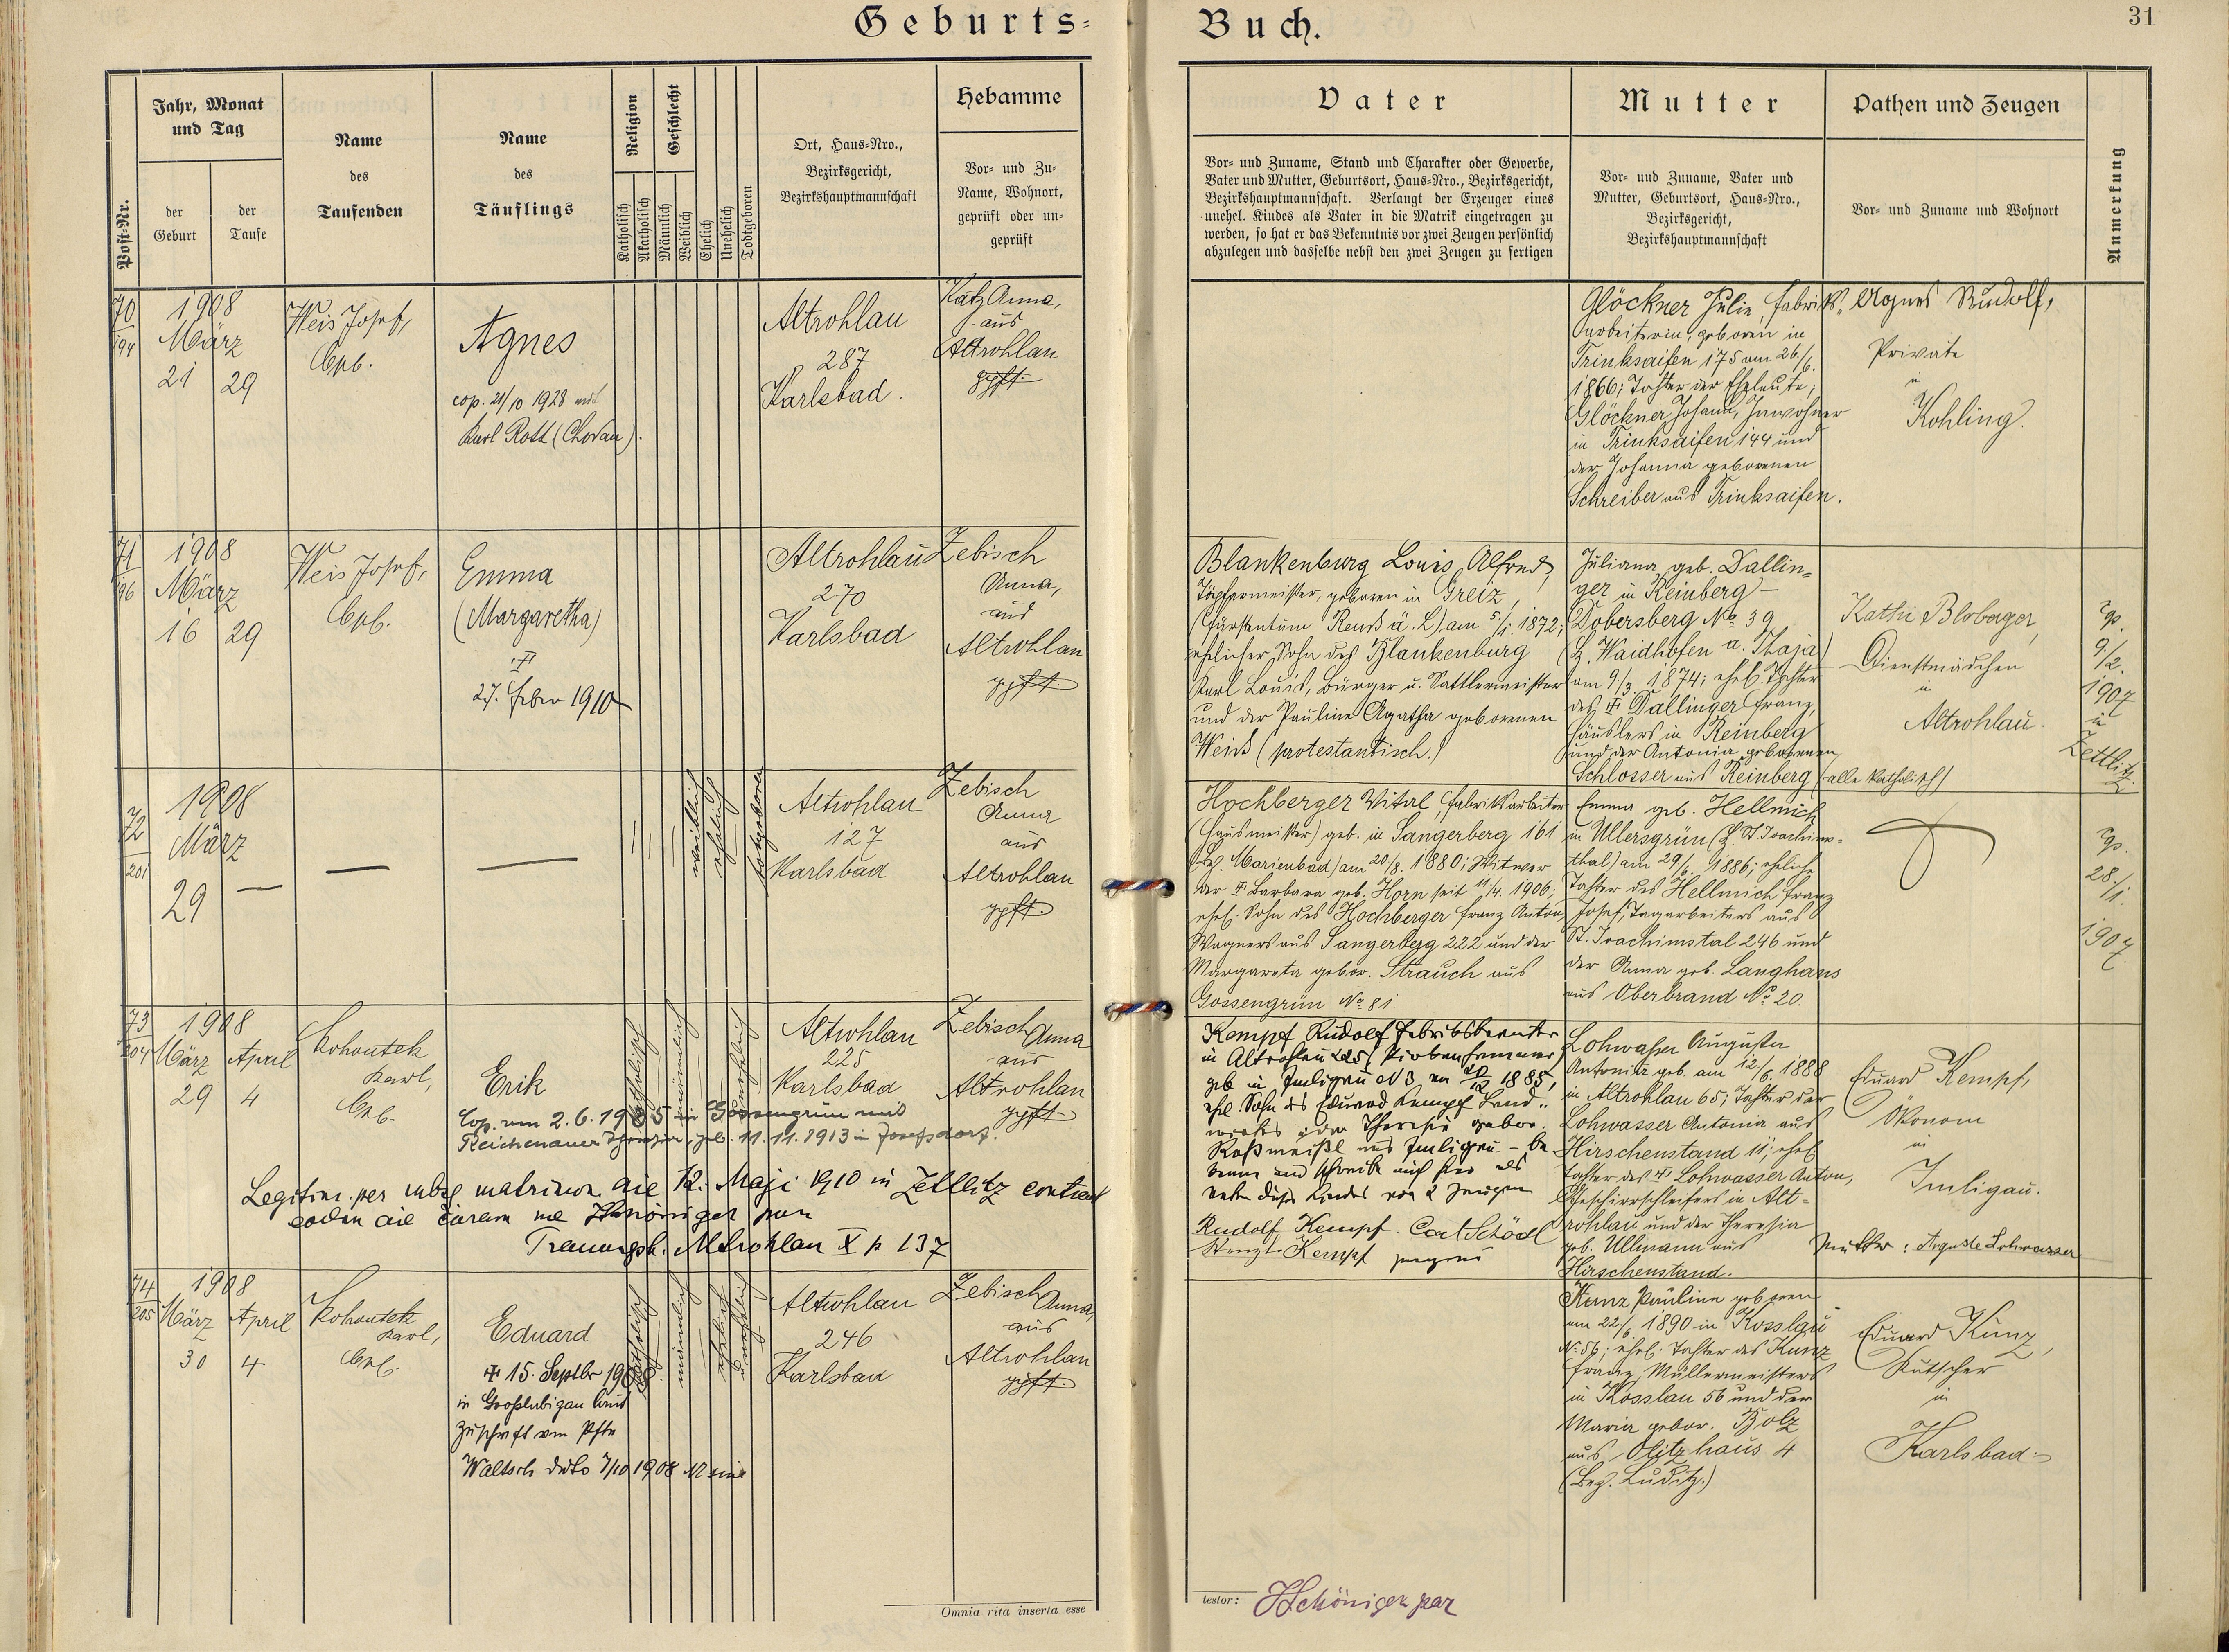 Geburts=
Buch.
31
Post-Nr.
Jahr, Monat
und Tag
der
Geburt
der
Taufe
Name
des
Taufenden
Name
des
Täuflings
Religion
Katholisch
Akatholisch
Geschlecht
Männlich
Weiblich
Ehelich
Unehelich
Todtgeboren
Ort, Haus-Nro.,
Bezirksgericht,
Bezirkshauptmannschaft
Hebamme
Vor- und Zu-
Name, Wohnort,
geprüft oder un-
geprüft
Vater
Vor- und Zuname, Stand und Charakter oder Gewerbe,
Vater und Mutter, Geburtsort, Haus-Nro., Bezirksgericht,
Bezirkshauptmannschaft. Verlangt der Erzeuger eines
unehel. Kindes als Vater in die Matrik eingetragen zu
werden, so hat er das Bekenntnis vor zwei Zeugen persönlich
abzulegen und dasselbe nebst den zwei Zeugen zu fertigen
Mutter
Vor- und Zuname, Vater und
Mutter, Geburtsort, Haus-Nro.,
Bezirksgericht,
Bezirkshauptmannschaft
Pathen und Zeugen
Vor- und Zuname und Wohnort
Anmerkung
70
194
1908
März
21
29
Weis Josef,
Agnes
cop. 21/10 1928 mit
Karl Rott (Chodau).
Altrohlau
287
Karlsbad.
Katz Anna,
aus
Altrohlau
gpft.
Glöckner Julie, Fabriks-
arbeiterin, geboren in
Trinksaifen 175 am 26./6.
1866; Tochter der Eheleute;
Glöckner Johann, Inwohner
in Trinksaifen 144 und
der Johanna geborenen
Schreiber aus Trinksaifen.
Agnes Rudolf,
Private
in
Kohling.
71
196
1908
März
16
29
Weis Josef,
Emma
(Margaretha)
27. Feber 1910
Altrohlau
270
Karlsbad
Zebisch
Anna,
aus
Altrohlau
gpft.
Blankenburg Louis Alfred,
Töpfermeister, geboren in Greiz,
(Fürstentum Reuß ä. L) am 5/1. 1872;
ehelicher Sohn des Blankenburg
Karl Louis, Bürger u. Sattlermeister
und der Pauline Agatha geborenen
Weiß (protestantisch.)
Juliana geb. Dallin=
ger in Reinberg-
Dobersberg No 39
(B. Waidhofen a. Thaja)
am 9/3. 1874; ehel. Tochter
des Dallinger Franz,
Häuslers in Reinberg
und der Antonia geborenen
Schlosser aus Reinberg (alle katholisch)
Kathi Bloberger,
Dienstmädchen
in
Altrohlau.
cop.
9/2.
1907
in
Zettlitz.
72
201
1908
März
29
weiblich
ehelich
todtgeboren
Altrohlau
127
Karlsbad
Zebisch
Anna
aus
Altrohlau
gpft.
Hochberger Vital, Fabriksarbeiter
(Hausmeister) geb. in Sangerberg 161
(Bz. Marienbad) am 20/8. 1880; Witwer
der Barbara geb. Horn seit 11/4. 1906;
ehel. Sohn des Hochberger Franz Anton
Wagners aus Sangerberg 222 und der
Margareta gebor. Strauch aus
Gossengrün No 81
Emma geb. Hellmich
in Ullersgrün (B. St Joachims-
thal) am 29/6. 1886; eheliche
Tochter des Hellmich Franz
Josef, Tagarbeiters aus
St. Joachimstal 246 und
der Anna geb. Langhans
aus Oberbrand No 20.
cop.
28/1.
1907.
73
204
1908
März
April
29
4
Kohoutek
Karl,
Erik
Cop. am 2.6.1935 in Gossengrün mit
Reichenauer geb. 11.11.1913 in Josefsdorf.
katholisch
männlich
unehelich
Altrohlau
225
Karlsbad
Zebisch Anna
aus
Altrohlau
gpft.
Legitim. per subs. matrimon. die 12. Maji 1910 in Zettlitz contract
Trauungsb. Altrohlau X p 137
Kempf Rudolf Fabriksbeamter
in Altrohlau 225
geb in Imligau N 3 am 20/12 1885,
ehel. Sohn des Eduard Kempf Land-
wirtes u. der Theresia gebor.
Roßmeißl aus Imligau – be
kenne und schreibe mich hier als
Vater dieses Kindes vor 2 Zeugen
Rudolf Kempf Carl Schödl
Kempf
Lohwasser Augusta
Antonia geb. am 12/6. 1888
in Altrohlau 65; Tochter der
Lohwasser Antonia aus
Hirschenstand 11; ehel
Tochter des Lohwasser Anton,
Geschirrschleifers in Alt-
rohlau und der Theresia
geb. Ullmann aus
Hirschenstand.
Eduard Kempf,
Ökonom
in
Imligau.
Mutter: Auguste Lohwasser
74
205
1908
März
April
30
4
Kohoutek
Karl,
Eduard
15. Septbr 1908
in Großlubigau laut
Zuschrift vom Pfte
Waltsch ddto 7/10 1908
katholisch
männlich
unehelich
Altrohlau
246
Karlsbad
Zebisch Anna,
aus
Altrohlau
gpft.
Kunz Pauline geboren
am 22./6. 1890 in Kosslau
No. 56; ehel. Tochter des Kunz
Franz, Müllermeisters
in Kosslau 56 und der
Maria gebor. Bolz
aus Olitzhaus 4
(Bez. Luditz.)
Eduard Kunz,
Kutscher
in
Karlsbad.
Omnia rita inserta esse
testor: Schöniger par